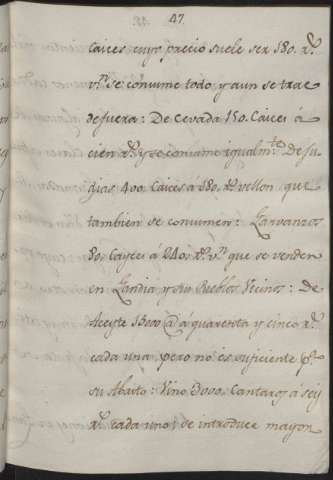 47
Caices cuyo precio suele ser 180. rˢ
vⁿ se consume todo y aun se trae
de fuera: De Cevada 150. Caices á
cien rˢ y se consume igualmᵗᵉ De Ju
dias 400. Caices á 180. rˢ vellon que
tambien se consumen: Garvanzos
80. Cayces á 240. rˢ vⁿ que se venden
en Gandia y sus Pueblos Vecinos: De
Aceyte 1500 @ á quarenta y cinco rˢ
cada una pero no es suficiente pᵃ
su Abasto: Vino 3000. Cantaros á seis
rˢ cada uno: se introduce mayor